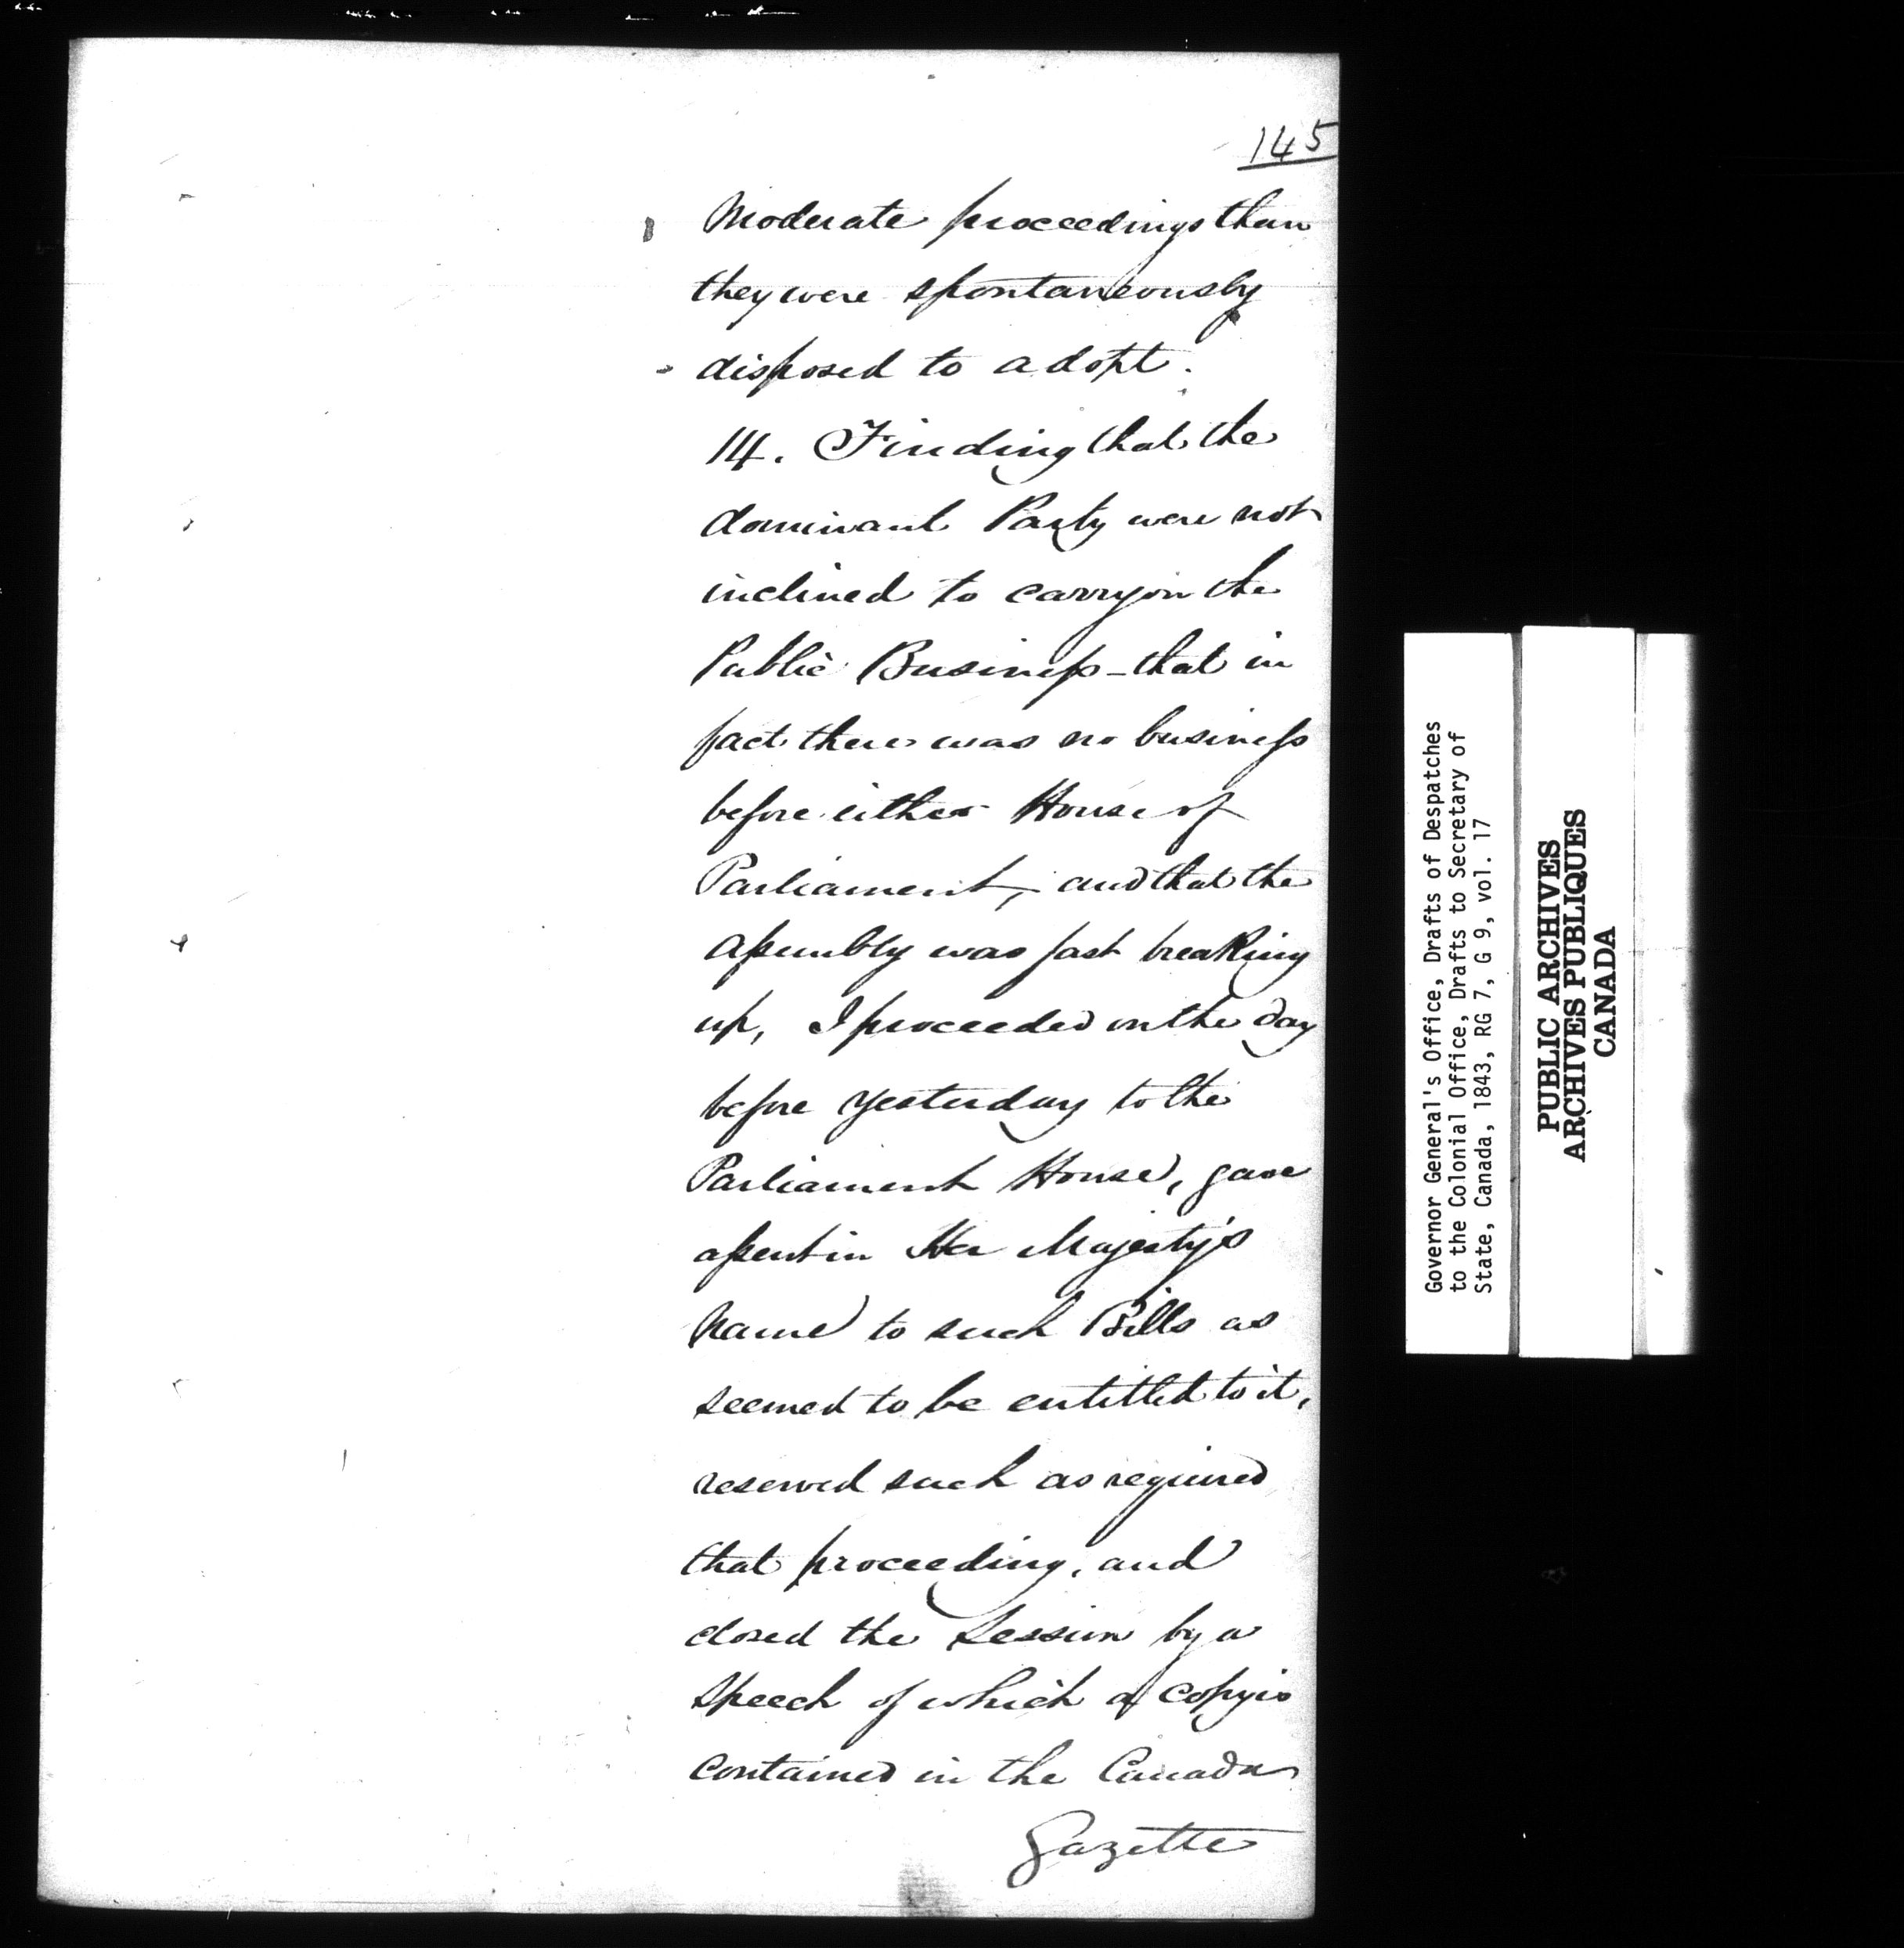 145
Moderate proceedings than
they were spontaneously
disposed to adopt.
14. Finding that the
dominant Party were not
inclined to carry on the
Public Business - that in
fact there was no business
before either House of
Parliament, and that the
Assembly was fast breaking
up, I proceeded on the day
before yesterday to the
Parliament House, gave
assent in Her Majesty's
Name to such Bills as
seemed to be entitled to it,
reserved such as required
that proceeding, and
closed the Session by a
Speech of which a copy is
contained in the Canada
Gazette
Governor General's Office, Drafts of Despatches
to the Colonial Office, Drafts to Secretary of
State, Canada, 1843, RG 7, G 9, vol. 17
PUBLIC ARCHIVES
ARCHIVES PUBLIQUES
CANADA